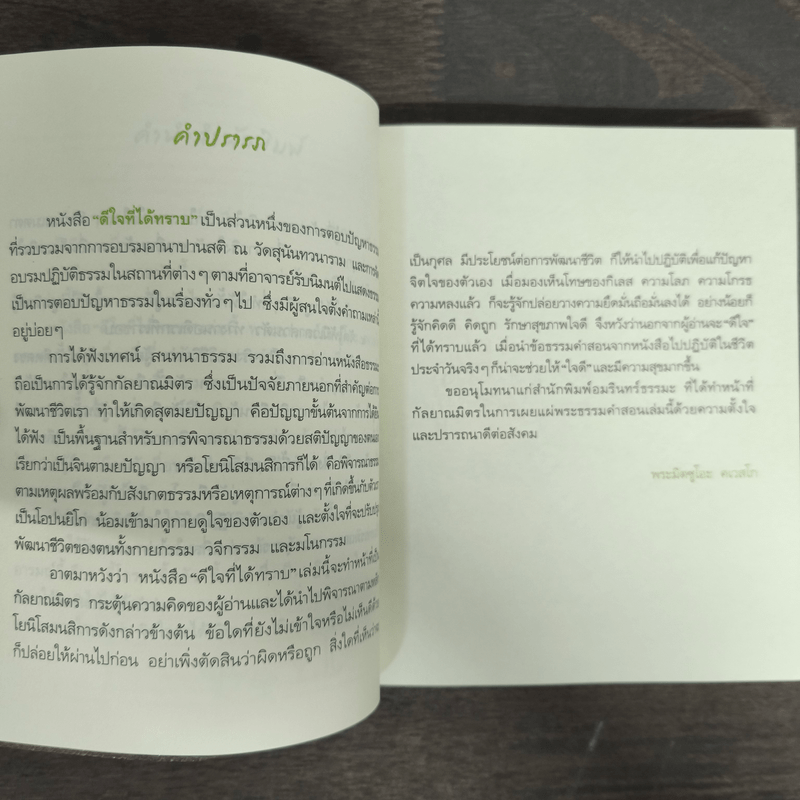 คำปรารภ
หนังสือ “ดีใจที่ได้ทราบ” เป็นส่วนหนึ่งของการตอบปัญหาธรรม
ที่รวบรวมจากการอบรมอานาปานสติ ณ วัดสุนันทวนาราม และการ
อบรมปฏิบัติธรรมในสถานที่ต่างๆ ตามที่อาจารย์รับนิมนต์ไปแสดงธรรม
เป็นการตอบปัญหาธรรมในเรื่องทั่วๆ ไป ซึ่งมีผู้สนใจตั้งคำถามเหล่านี้
อยู่บ่อยๆ
การได้ฟังเทศน์ สนทนาธรรม รวมถึงการอ่านหนังสือธรรมะ
ถือเป็นการได้รู้จักกัลยาณมิตร ซึ่งเป็นปัจจัยภายนอกที่สำคัญต่อการ
พัฒนาชีวิตเรา ทำให้เกิดสุตมยปัญญา คือปัญญาขั้นต้นจากการได้
ได้ฟัง เป็นพื้นฐานสำหรับการพิจารณาธรรมด้วยสติปัญญาของตนเอง
เรียกว่าเป็นจินตามยปัญญา หรือโยนิโสมนสิการก็ได้ คือพิจารณาธรรม
ตามเหตุผลพร้อมกับสังเกตธรรมหรือเหตุการณ์ต่างๆ ที่เกิดขึ้นกับตัวเรา
เป็นโอปนยิโก น้อมเข้ามาดูกายดูใจของตัวเอง และตั้งใจที่จะปรับปรุง
พัฒนาชีวิตของตนทั้งกายกรรม วจีกรรม และมโนกรรม
อาตมาหวังว่า หนังสือ “ดีใจที่ได้ทราบ” เล่มนี้จะทำหน้าที่เป็น
กัลยาณมิตร กระตุ้นความคิดของผู้อ่านและได้นำไปพิจารณาตามหลัก
โยนิโสมนสิการดังกล่าวข้างต้น ข้อใดที่ยังไม่เข้าใจหรือไม่เห็นดีด้วย
ก็ปล่อยให้ผ่านไปก่อน อย่าเพิ่งตัดสินว่าผิดหรือถูก สิ่งใดที่เห็นว่า
เป็นกุศล มีประโยชน์ต่อการพัฒนาชีวิต ก็ให้นำไปปฏิบัติเพื่อแก้ปัญหา
จิตใจของตัวเอง เมื่อมองเห็นโทษของกิเลส ความโลภ ความโกรธ
ความหลงแล้ว ก็จะรู้จักปล่อยวางความยึดมั่นถือมั่นลงได้ อย่างน้อยก็
รู้จักคิดดี คิดถูก รักษาสุขภาพใจดี จึงหวังว่านอกจากผู้อ่านจะ “ดีใจ”
ที่ได้ทราบแล้ว เมื่อนำข้อธรรมคำสอนจากหนังสือไปปฏิบัติในชีวิต
ประจำวันจริงๆ ก็น่าจะช่วยให้ “ใจดี” และมีความสุขมากขึ้น
ขออนุโมทนาแก่สำนักพิมพ์อมรินทร์ธรรมะ ที่ได้ทำหน้าที่
กัลยาณมิตรในการเผยแผ่พระธรรมคำสอนเล่มนี้ด้วยความตั้งใจ
และปรารถนาดีต่อสังคม
พระมิตซูโอะ คเวสโก